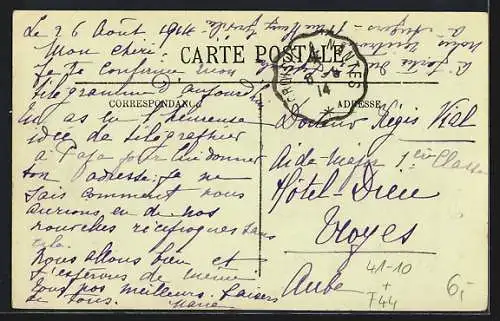 Le 26 Août 1914
Mon chéri.
CARTE POSTALE
Je te confirme mon
télégramme d'aujourd'hui
CORRESPONDANCE
ADRESSE
NANTES
14
Tu as eu l'heureuse
idée de télégraphier
à Papa pour lui donner
ton adresse. Je ne
sais comment nous
aurions eu de nos
nouvelles réciproques sans
cela.
Nous allons bien et
j'espère de même
tous nos meilleurs baisers
de tous. Marie
Docteur Régis Vial
Aide Major 1ère Classe
Hôtel-Dieu
Troyes
Aube
41-10
+
F44
6,-